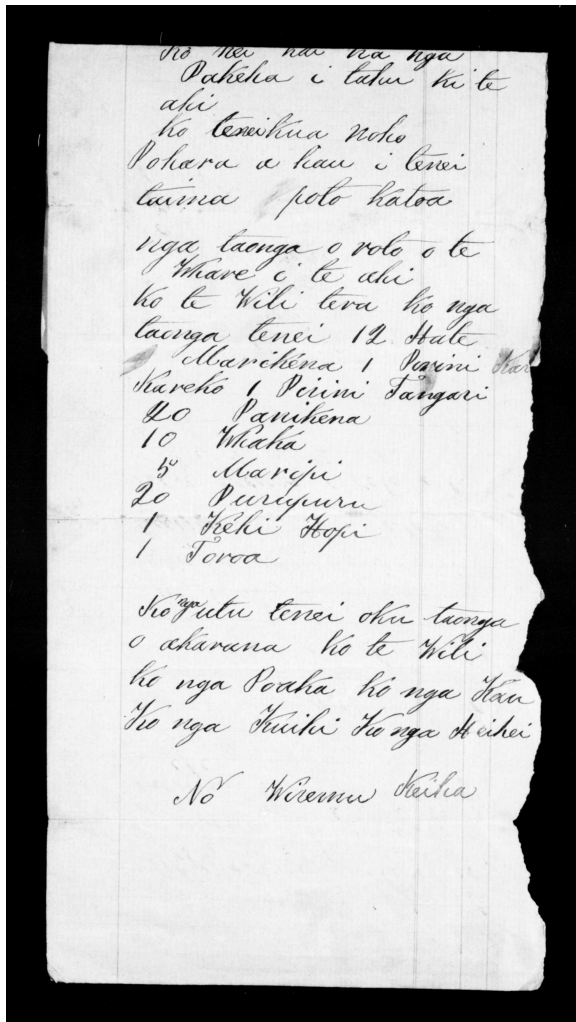 Ko nei hai na nga
Pakeha i tahu ki te
ahi
ko teneikua noho
Pohara a hau i tenei
taima poto katoa
nga taonga o roto o te
Whare i te ahi
Ko te Wili tera ko nga
taonga tenei 12 Hate
Marikena 1 Pirini Kar
Kareko 1 Pirini Tangari
20 Panikena
10 Whaka
5 Maripi
20 Purupuru
1 Kehi Hopi
1 Toroa
Ko nga utu tenei oku taonga
o akarana ko te Wili
ko nga Poaka ko nga Kau
Ko nga Kuihi Ko nga Heihei
No Wiremu Keiha